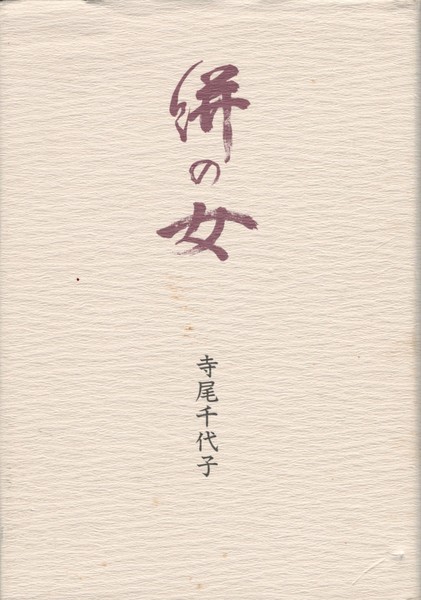 絣の女
寺尾千代子